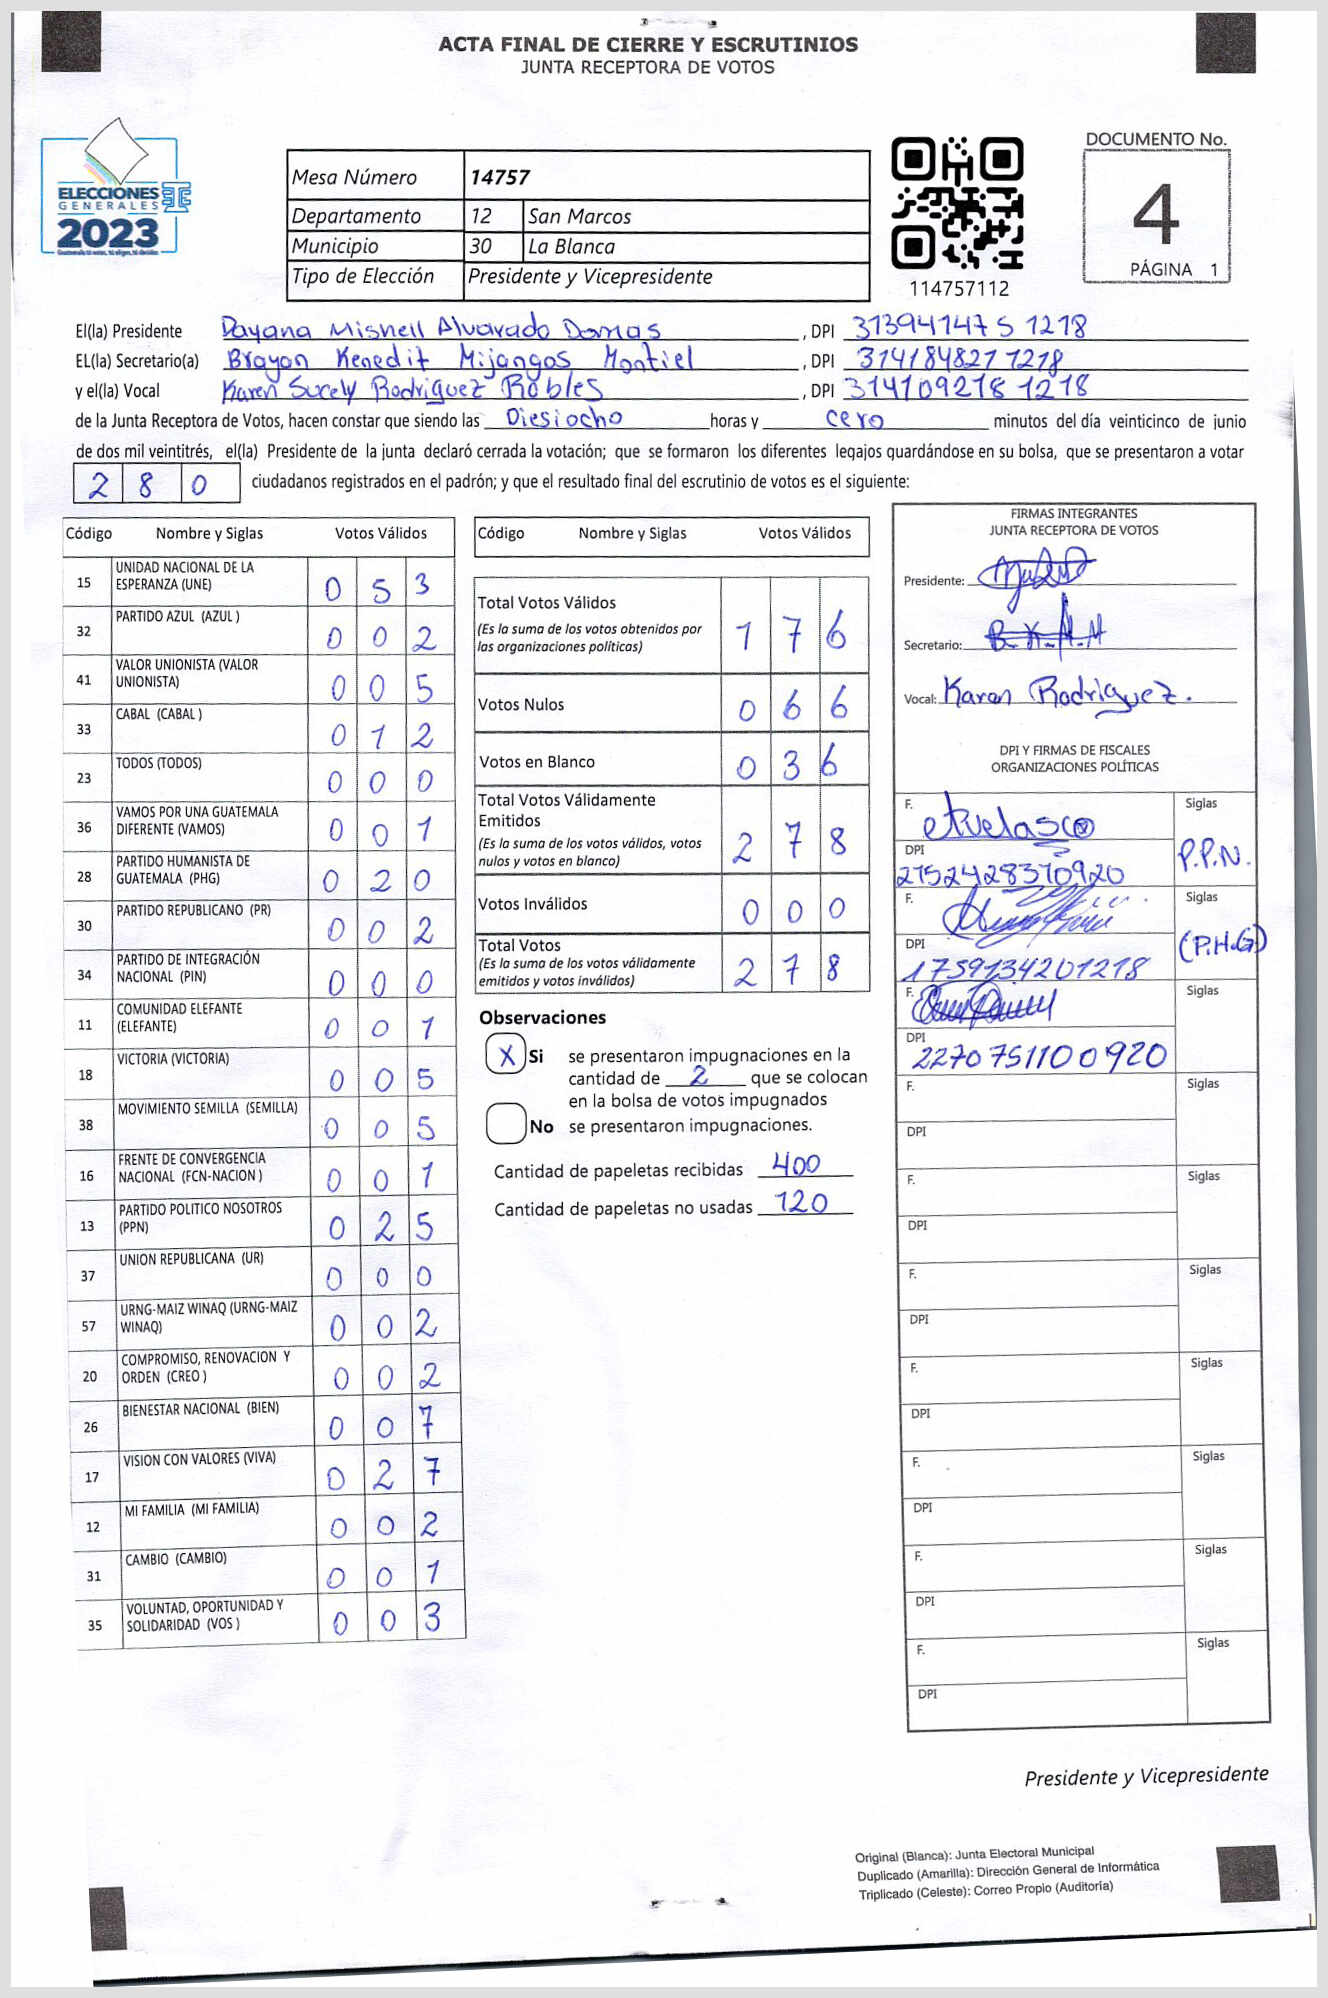 ACTA FINAL DE CIERRE Y ESCRUTINIOS
JUNTA RECEPTORA DE VOTOS
ELECCIONES
GENERALES
2023
Mesa Número 14757
Departamento 12 San Marcos
Municipio 30 La Blanca
Tipo de Elección Presidente y Vicepresidente
114757112
DOCUMENTO No.
4
PÁGINA 1
El(la) Presidente Dayana Mishell Alvarado Damas, DPI 313941475 1218
EL(la) Secretario(a) Brayan Kenedit Mijangos Montiel, DPI 314184827 1218
y el(la) Vocal Karen Sucely Rodriguez Robles, DPI 314109218 1218
de la Junta Receptora de Votos, hacen constar que siendo las Diesiocho horas y cero minutos del día veinticinco de junio
de dos mil veintitrés, el(la) Presidente de la junta declaró cerrada la votación; que se formaron los diferentes legajos guardándose en su bolsa, que se presentaron a votar
280 ciudadanos registrados en el padrón; y que el resultado final del escrutinio de votos es el siguiente:
Código Nombre y Siglas Votos Válidos
15 UNIDAD NACIONAL DE LA ESPERANZA (UNE) 0 5 3
32 PARTIDO AZUL (AZUL ) 0 0 2
41 VALOR UNIONISTA (VALOR UNIONISTA) 0 0 5
33 CABAL (CABAL ) 0 1 2
23 TODOS (TODOS) 0 0 0
36 VAMOS POR UNA GUATEMALA DIFERENTE (VAMOS) 0 0 1
28 PARTIDO HUMANISTA DE GUATEMALA (PHG) 0 2 0
30 PARTIDO REPUBLICANO (PR) 0 0 2
34 PARTIDO DE INTEGRACIÓN NACIONAL (PIN) 0 0 0
11 COMUNIDAD ELEFANTE (ELEFANTE) 0 0 1
18 VICTORIA (VICTORIA) 0 0 5
38 MOVIMIENTO SEMILLA (SEMILLA) 0 0 5
16 FRENTE DE CONVERGENCIA NACIONAL (FCN-NACION ) 0 0 1
13 PARTIDO POLITICO NOSOTROS (PPN) 0 2 5
37 UNION REPUBLICANA (UR) 0 0 0
57 URNG-MAIZ WINAQ (URNG-MAIZ WINAQ) 0 0 2
20 COMPROMISO, RENOVACION Y ORDEN (CREO ) 0 0 2
26 BIENESTAR NACIONAL (BIEN) 0 0 7
17 VISION CON VALORES (VIVA) 0 2 7
12 MI FAMILIA (MI FAMILIA) 0 0 2
31 CAMBIO (CAMBIO) 0 0 1
35 VOLUNTAD, OPORTUNIDAD Y SOLIDARIDAD (VOS ) 0 0 3
Código Nombre y Siglas Votos Válidos
Total Votos Válidos 1 7 6
(Es la suma de los votos obtenidos por
las organizaciones políticas)
Votos Nulos 0 6 6
Votos en Blanco 0 3 6
Total Votos Válidamente
Emitidos 2 7 8
(Es la suma de los votos válidos, votos
nulos y votos en blanco)
Votos Inválidos 0 0 0
Total Votos 2 7 8
(Es la suma de los votos válidamente
emitidos y votos inválidos)
Observaciones
X Si se presentaron impugnaciones en la
cantidad de 2 que se colocan
en la bolsa de votos impugnados
No se presentaron impugnaciones.
Cantidad de papeletas recibidas 400
Cantidad de papeletas no usadas 120
FIRMAS INTEGRANTES
JUNTA RECEPTORA DE VOTOS
Presidente:
Secretario: B. K. M. M
Vocal: Karen Rodriguez.
DPI Y FIRMAS DE FISCALES
ORGANIZACIONES POLÍTICAS
F. etvelasco Siglas P.P.N.
DPI 2752428370920
F. Siglas (P.H.G)
DPI 1759134201218
F. Siglas
DPI 2270751100920
F. Siglas
DPI
F. Siglas
DPI
F. Siglas
DPI
F. Siglas
DPI
F. Siglas
DPI
F. Siglas
DPI
F. Siglas
DPI
Presidente y Vicepresidente
Original (Blanca): Junta Electoral Municipal
Duplicado (Amarilla): Dirección General de Informática
Triplicado (Celeste): Correo Propio (Auditoría)